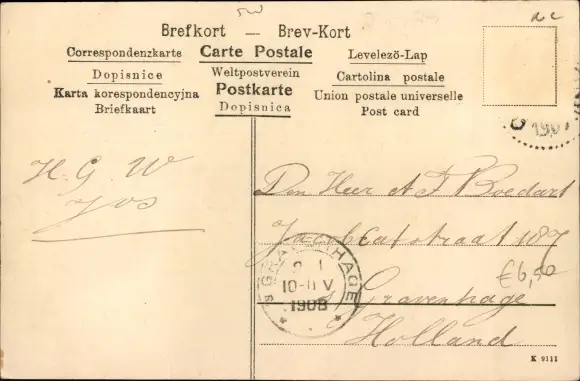 Brefkort — Brev-Kort
Correspondenzkarte Carte Postale Levelezö-Lap
Dopisnice Weltpostverein Cartolina postale
Karta korespondencyjna Postkarte Union postale universelle
Briefkaart Dopisnica Post card
190
H. G. W
Jos
Den Heer A F Boedart
Jacob Catsstraat 187
€6,50
s Gravenhage
Holland
'S GRAVENHAGE
9 1
10-11 V
1908
K 9111